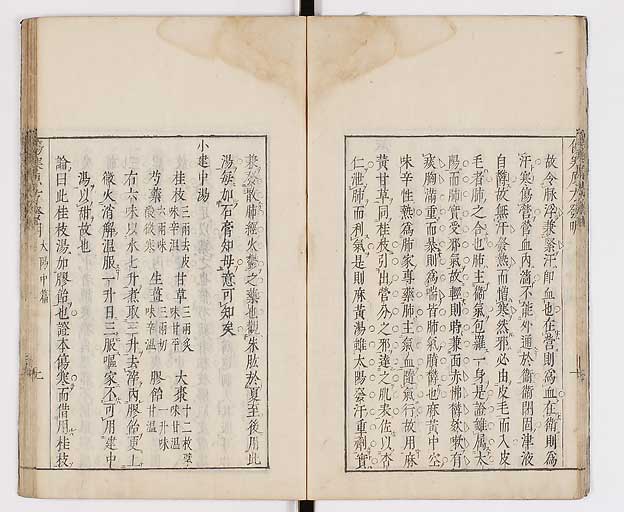 故令脉浮兼緊汗即血也在營則爲血在衛則爲
汗寒傷營營血內濇不能外通於衛衛閉固津液
自降故無汗發熱而憎寒然邪必由皮毛而入皮
毛者肺之合也肺主衛氣包羅一身是證雖屬太
陽而肺實受邪氣故輕則時兼面赤怫鬱欬嗽有
痰胸滿重而暴則爲喘皆肺氣膹鬱也麻黃中空
味辛性熱爲肺家專藥肺主氣血隨氣行故用麻
黃甘草同桂枝引出營分之邪達之肌表佐以杏
仁泄肺而利氣是則麻黃湯雖太陽發汗重劑實
發散肺經火鬱之藥也觀朱肱於夏至後用此
湯必加石膏知母意可知矣
小建中湯
桂枝 三兩去皮 味辛溫 甘草 三兩炙 味甘平 大棗 十二枚擘 味甘溫
芍藥 六兩 味酸微寒 生薑 三兩切 味辛溫 膠飴 一升 味甘溫
右六味以水七升煮取三升去滓內膠飴更上
微火消解溫服一升日三服嘔家不可用建中
湯以甜故也
論曰此桂枝湯加膠飴也證本傷寒而借用桂枝
太陽中篇